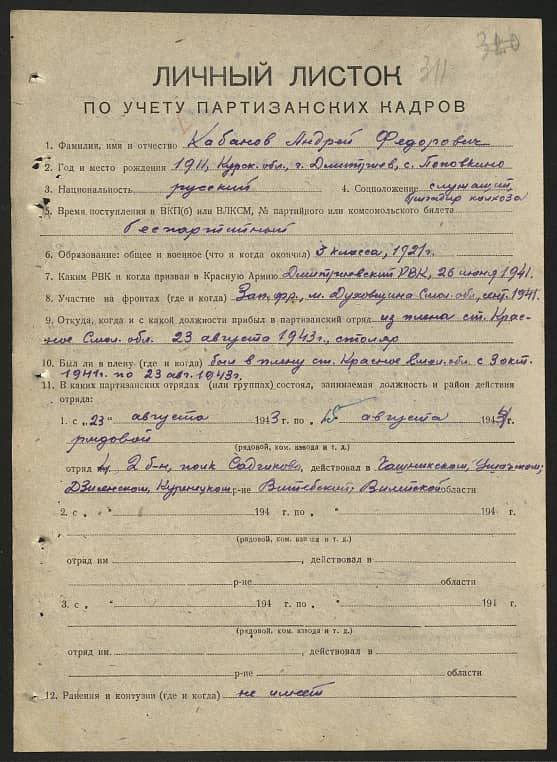 320
311
ЛИЧНЫЙ ЛИСТОК
ПО УЧЕТУ ПАРТИЗАНСКИХ КАДРОВ
1. Фамилия, имя и отчество Кабанов Андрей Федорович
2. Год и место рождения 1911, Курск. обл., г. Дмитриев, с. Поповкино
3. Национальность русский 4. Соцположение служащий,
бригадир колхоза
5. Время поступления в ВКП(б) или ВЛКСМ, № партийного или комсомольского билета
беспартийный
6. Образование: общее и военное (что и когда окончил) 3 класса, 1921г.
7. Каким РВК и когда призван в Красную Армию Дмитриевский РВК, 26 июня 1941.
8. Участие на фронтах (где и когда) Зап. фр., м. Духовщина Смол. обл., сент. 1941.
9. Откуда, когда и с какой должности прибыл в партизанский отряд из плена ст. Крас-
ное Смол. обл. 23 августа 1943г., столяр
10. Был ли в плену (где и когда) был в плену ст. Красное Смол. обл. с 3 окт.
1941г. по 23 авг. 1943г.
11. В каких партизанских отрядах (или группах) состоял, занимаемая должность и район действия
отряда:
1. с „23" августа 1943 г. по „ августа 1944 г.
рядовой
(рядовой, ком. взвода и т. д.)
отряд 2 б-н, полк Садчикова, действовал в Чашникском, Ушачском,
Дзисенском, Куренецком р-не Витебской, Вилейской области
2. с „ " 194 г. по „ " 194 г.
(рядовой, ком. взвода и т. д.)
отряд им , действовал в
р-не области
3. с „ " 194 г. по „ " 194 г.
(рядовой, ком. взвода и т. д.)
отряд им. , действовал в
р-не области
12. Ранения и контузии (где и когда) не имеет